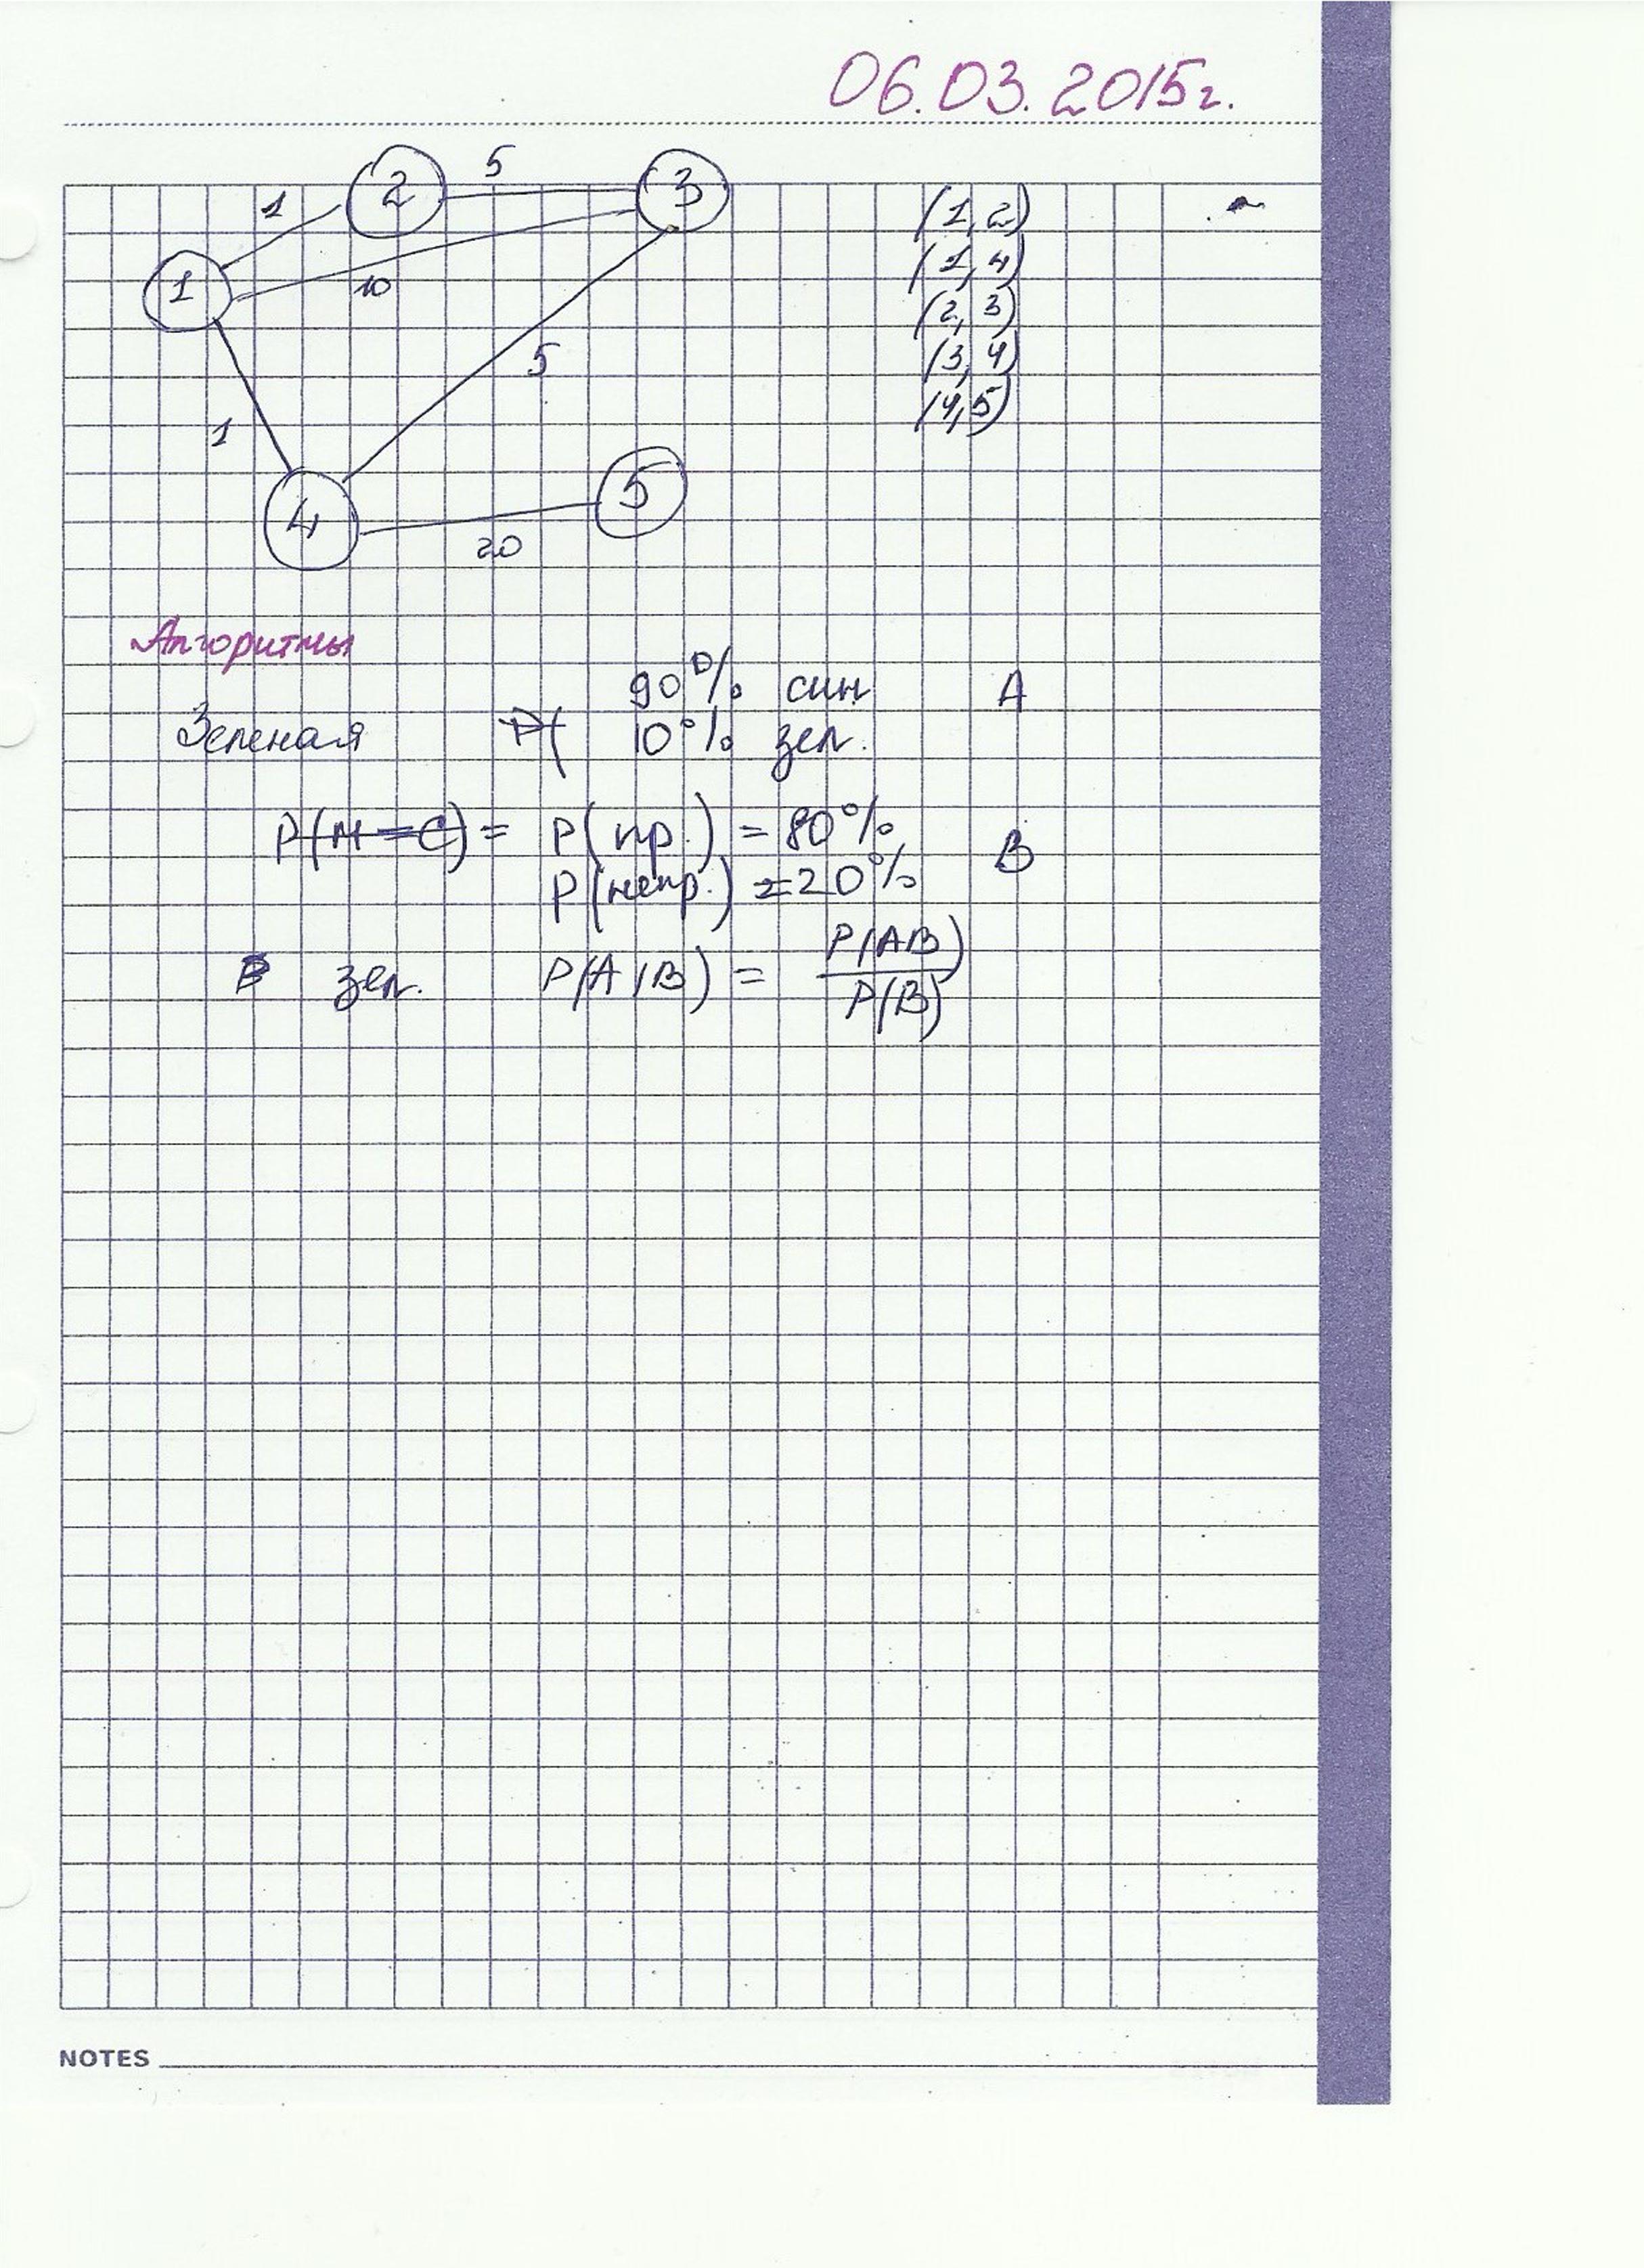 06.03.2015г.
1 2 5 3
1 10
5
1
4 20 5
(1,2)
(1,4)
(2,3)
(3,4)
(4,5)
Алгоритмы
90% син A
Зеленая P( 10% зел.
P(M=C) = P(пр.) = 80%
P(непр.) = 20% B
зел. P(A|B) = P(AB)
P(B)
NOTES